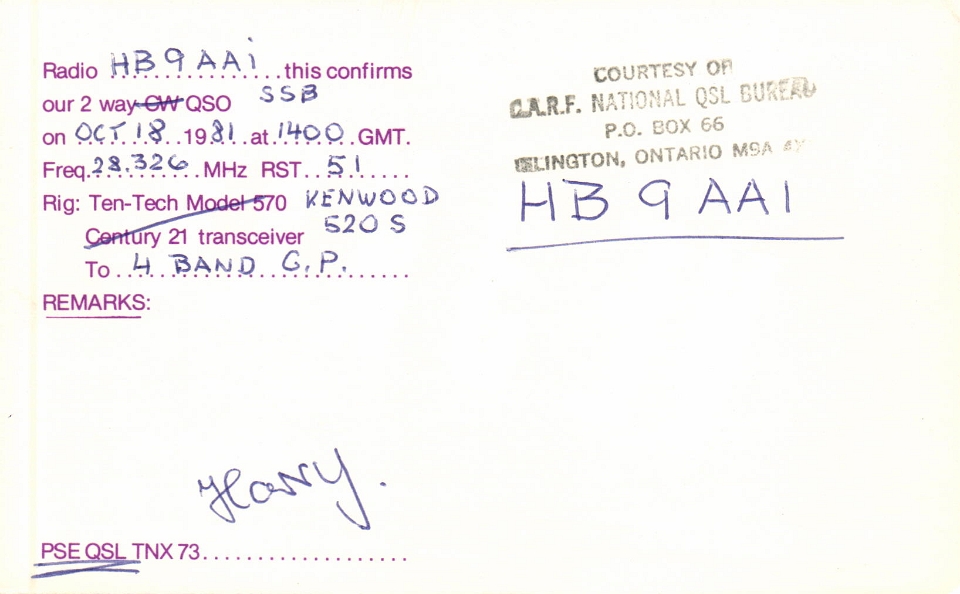 Radio HB9AAi this confirms
our 2 way CW QSO SSB
on OCT. 18 1981 at 1400 GMT.
Freq. 28.326 MHz RST 51
Rig: Ten-Tech Model 570 KENWOOD
Century 21 transceiver 520 S
To 4 BAND G.P.
REMARKS:
Harry.
PSE QSL TNX 73
COURTESY OF
C.A.R.F. NATIONAL QSL BUREAU
P.O. BOX 66
ISLINGTON, ONTARIO M9A
HB9AA1